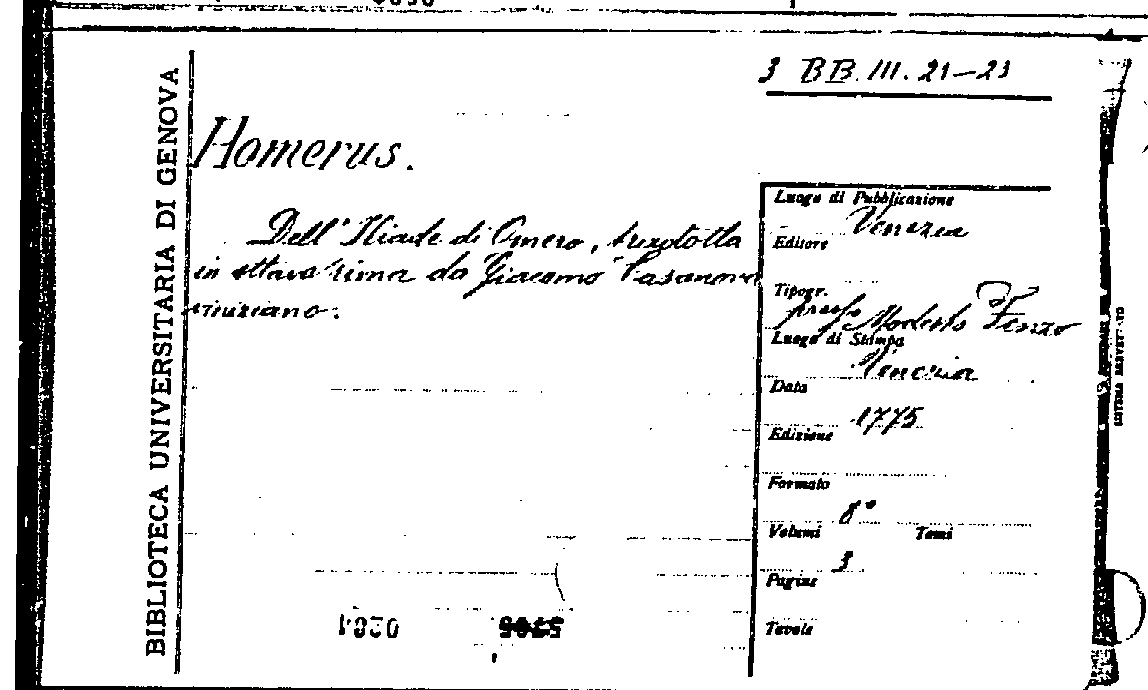 3 BB. III. 21-23
BIBLIOTECA UNIVERSITARIA DI GENOVA
Homerus.
Dell' Iliade di Omero, tradotta
in ottava rima da Giacomo Casanova
viniziano.
Luogo di Pubblicazione
Venezia
Editore
Tipogr.
presso Modesto Fenzo
Luogo di Stampa
Venezia
Data
1775
Edizione
Formato
8°
Volumi Tomi
3
Pagine
Tavole